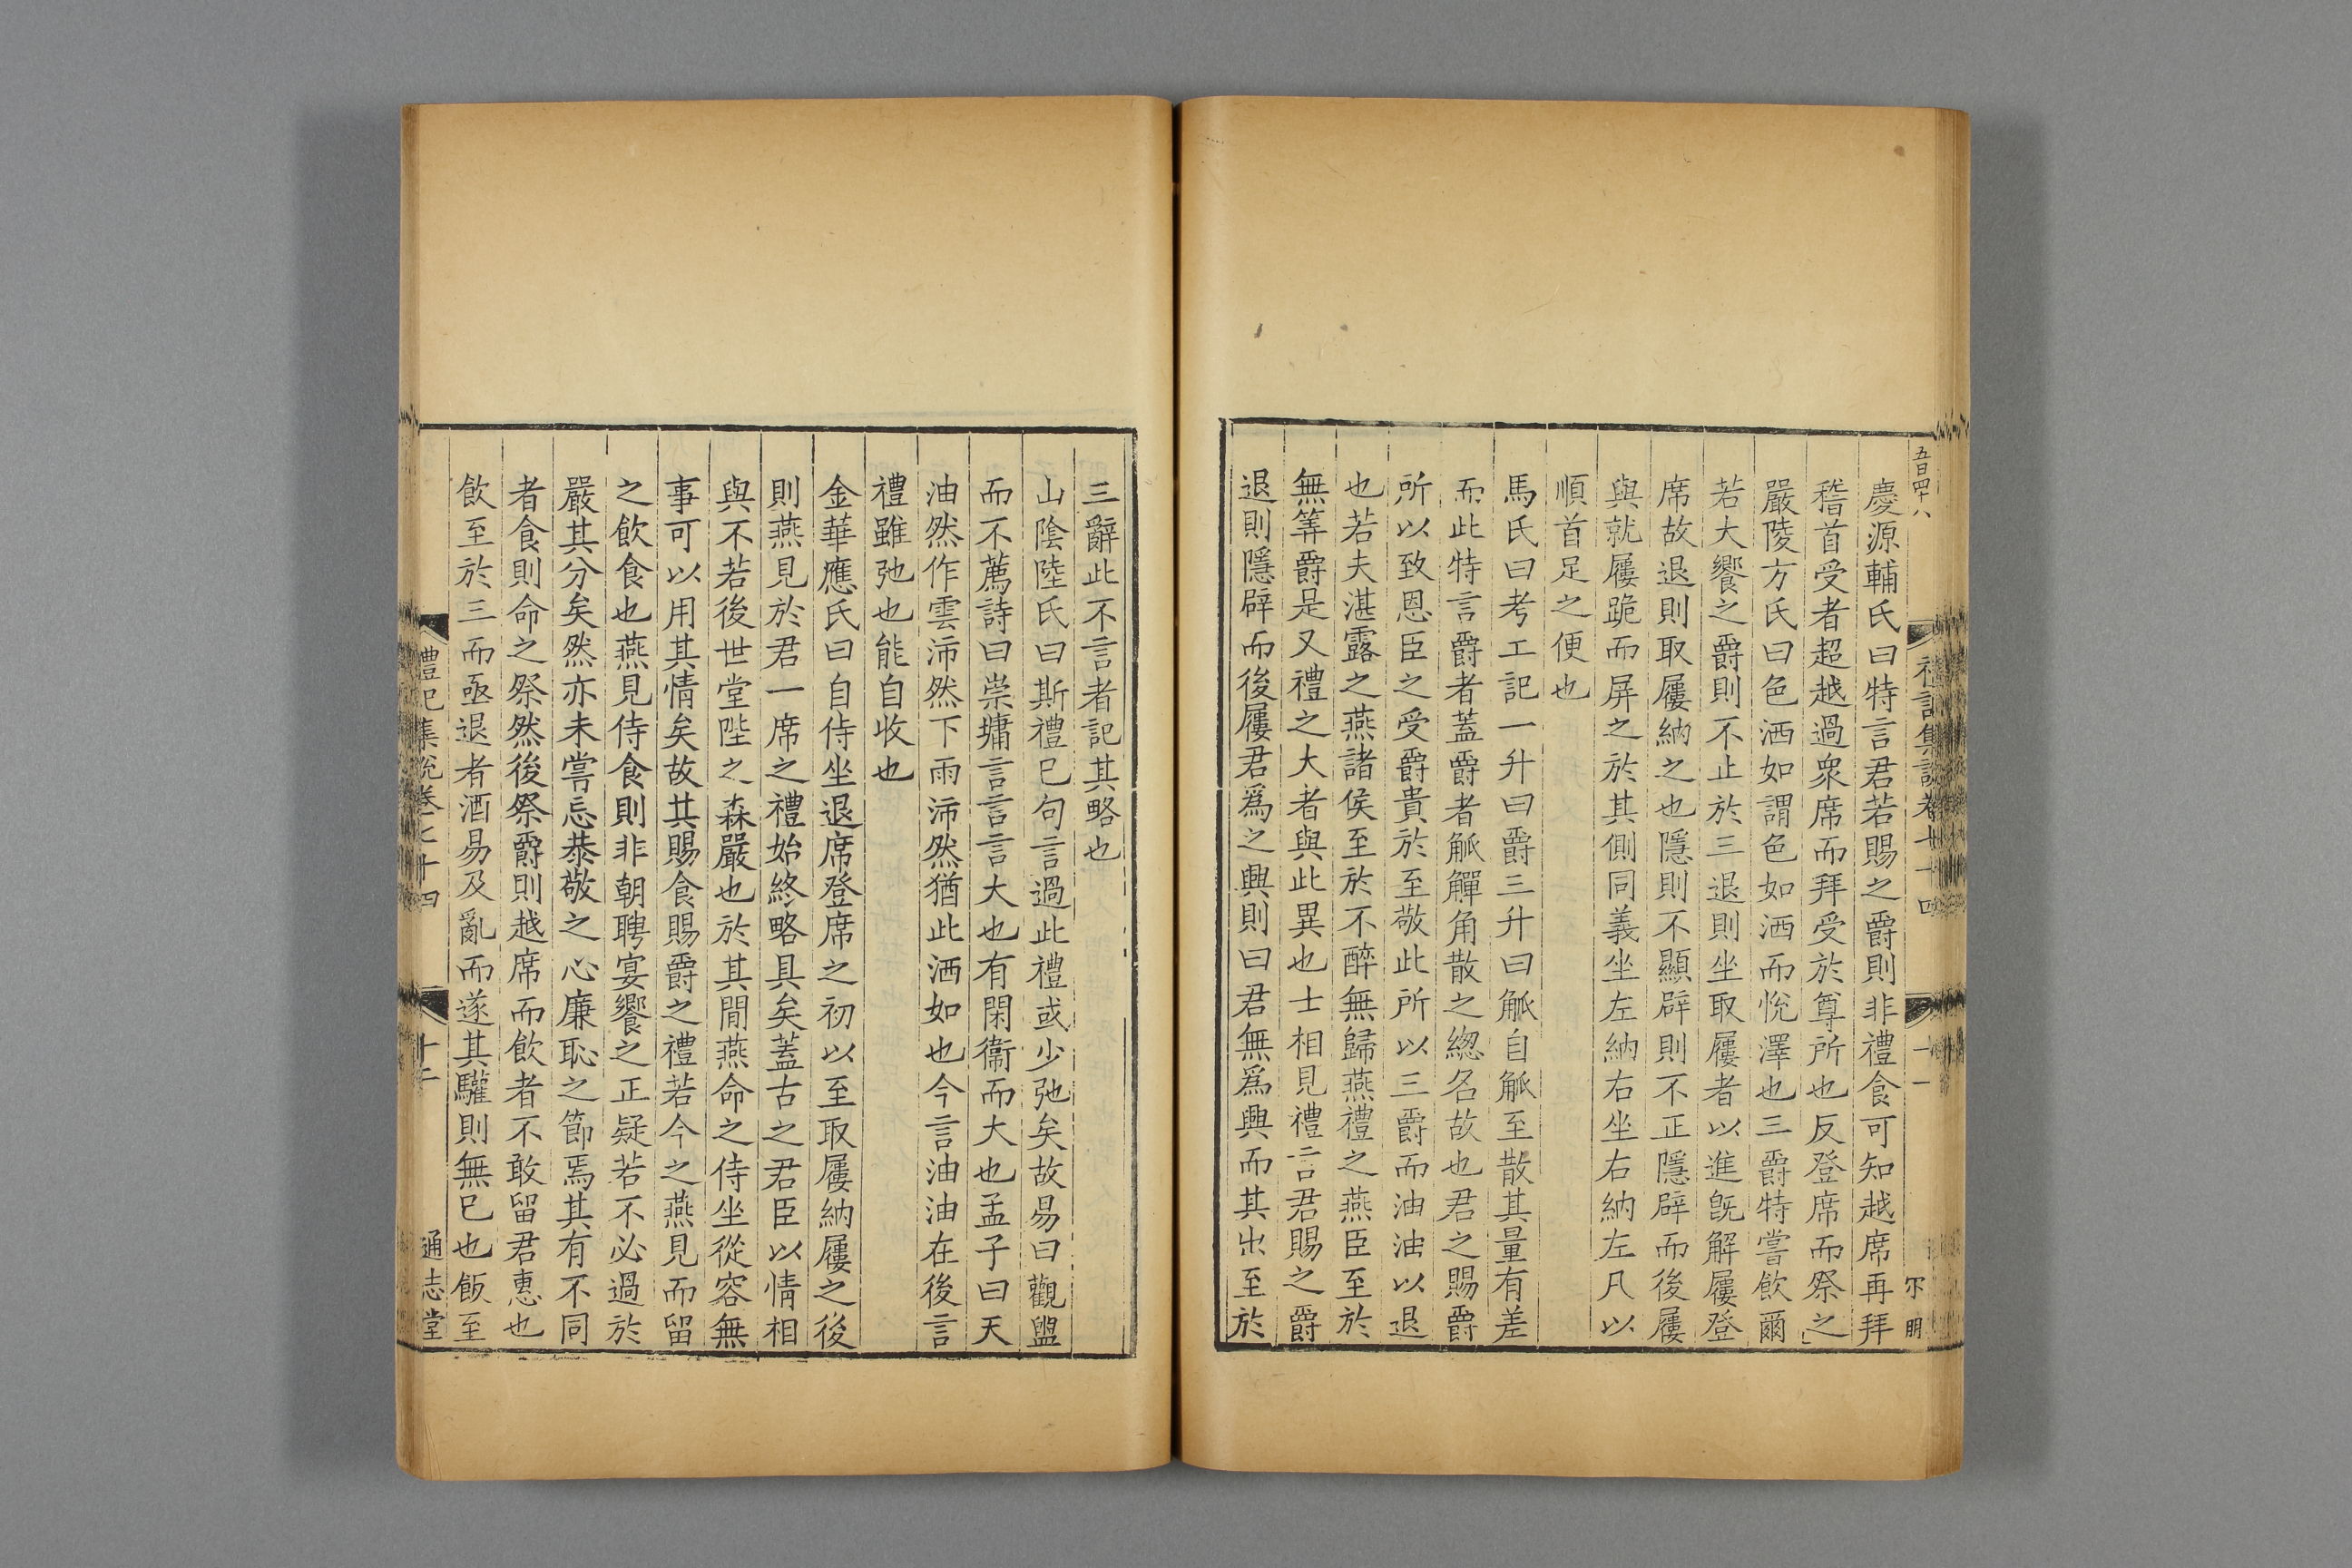 五百四十八
禮記集說卷七十四
十一
尔明
慶源輔氏曰特言君若賜之爵則非禮食可知越席再拜
稽首受者超越過衆席而拜受於尊所也反登席而祭之
嚴陵方氏曰色洒如謂色如洒而悅澤也三爵特嘗飲爾
若大饗之爵則不止於三退則坐取屨者以進旣解屨登
席故退則取屨納之也隱則不顯辟則不正隱辟而後屨
與就屨跪而屏之於其側同義坐左納右坐右納左凡以
順首足之便也
馬氏曰考工記一升曰爵三升曰觚自觚至散其量有差
而此特言爵者蓋爵者觚觶角散之緫名故也君之賜爵
所以致恩臣之受爵貴於至敬此所以三爵而油油以退
也若夫湛露之燕諸侯至於不醉無歸燕禮之燕臣至於
無筭爵是又禮之大者與此異也士相見禮言君賜之爵
退則隱辟而後屨君爲之興則曰君無爲興而其出至於
三辭此不言者記其略也
山陰陸氏曰斯禮巳句言過此禮或少弛矣故易曰觀盥
而不薦詩曰崇墉言言言大也有閑衞而大也孟子曰天
油然作雲沛然下雨沛然猶此洒如也今言油油在後言
禮雖弛也能自收也
金華應氏曰自侍坐退席登席之初以至取屨納屨之後
則燕見於君一席之禮始終略具矣蓋古之君臣以情相
與不若後世堂陛之森嚴也於其間燕命之侍坐從容無
事可以用其情矣故其賜食賜爵之禮若今之燕見而留
之飲食也燕見侍食則非朝聘宴饗之正疑若不必過於
嚴其分矣然亦未嘗忘恭敬之心廉恥之節焉其有不同
者食則命之祭然後祭爵則越席而飲者不敢留君惠也
飲至於三而亟退者酒易及亂而遂其驩則無巳也飯至
禮記集說卷之十四
十二
通志堂